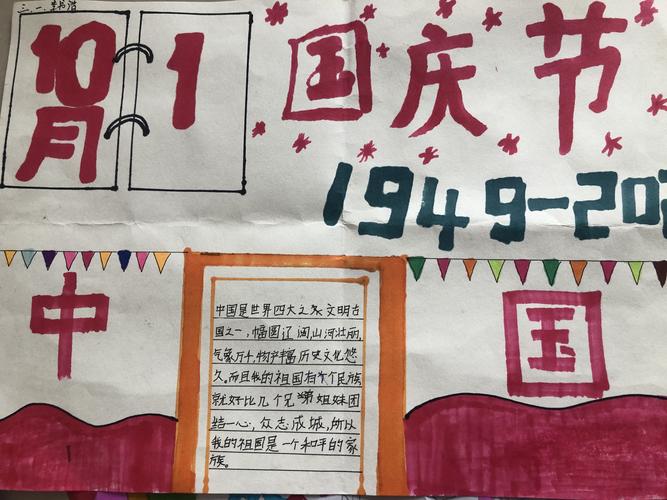 三、一、
10月 1 国庆节
1949-20
中 国
中国是世界四大之家文明古
国之一,幅圆辽阔,山河壮丽,
气象万千,物产丰富历史文化悠
久。而且我的祖国有个民族
就好比几个兄弟姐妹团
结一心,众志成城,所以
我的祖国是一个和平的家
族。